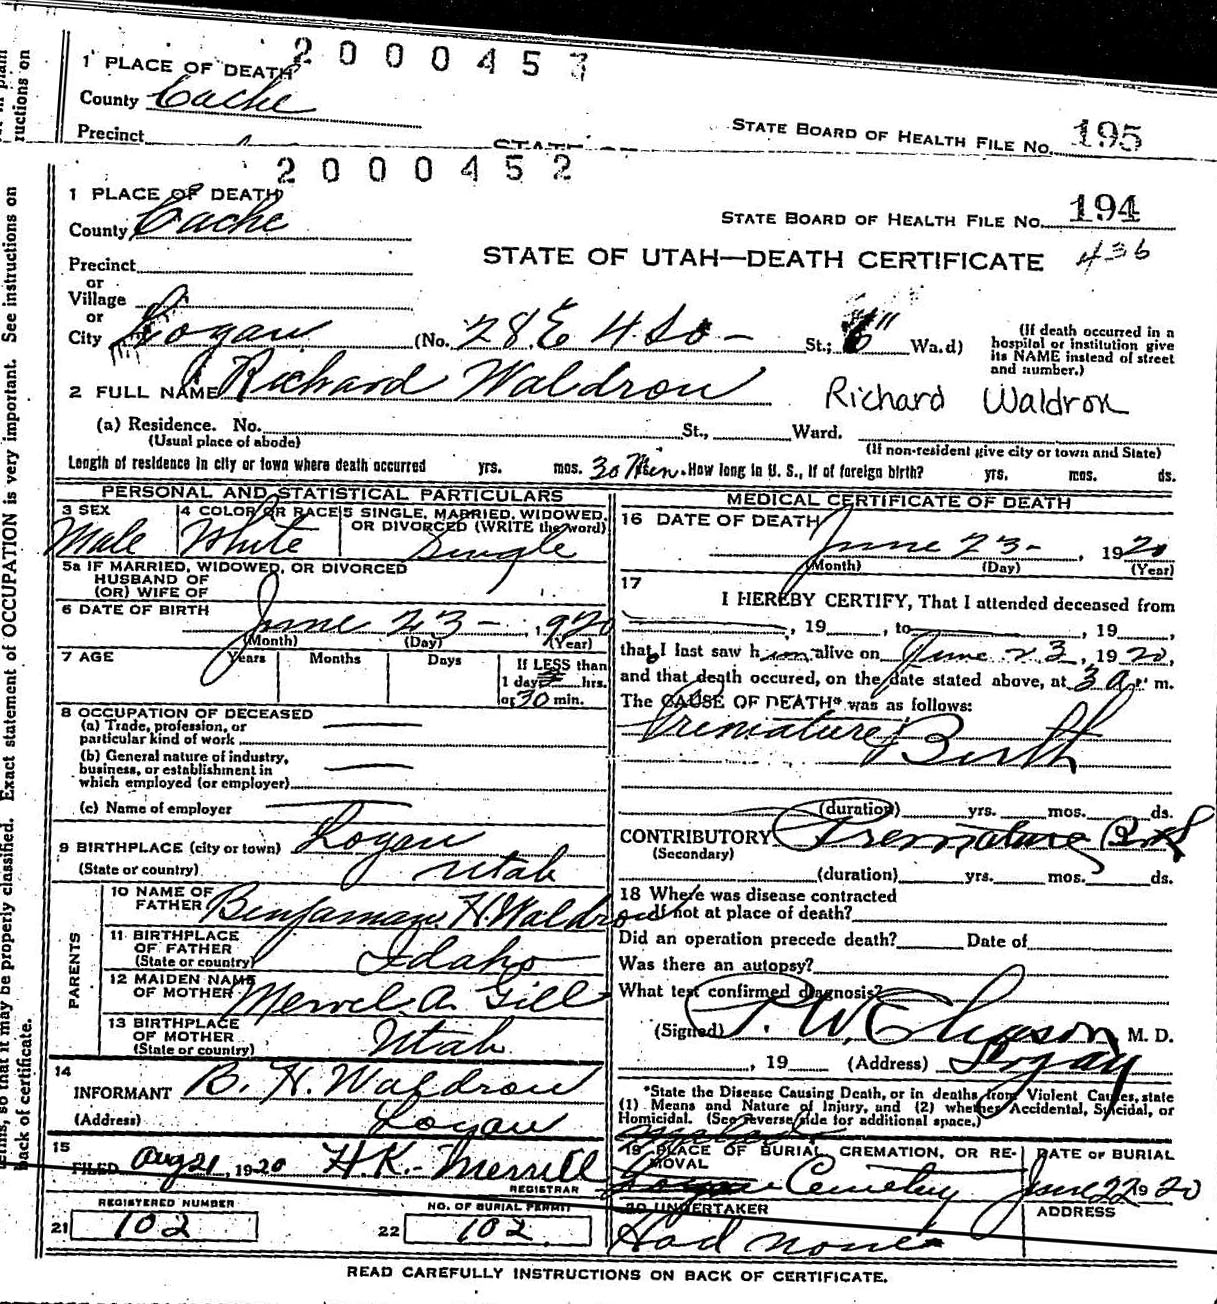 2000453
1 PLACE OF DEATH
County Cache
Precinct
STATE BOARD OF HEALTH FILE No. 195
2000452
1 PLACE OF DEATH
STATE BOARD OF HEALTH FILE No. 194
County Cache
STATE OF UTAH—DEATH CERTIFICATE 436
Precinct
or
Village
or
City Logan (No. 28 E 4 So - St.; 6" Wa.d)
(If death occurred in a
hospital or institution give
its NAME instead of street
and number.)
2 FULL NAME Richard Waldron Richard Waldron
(a) Residence. No. St., Ward.
(Usual place of abode) (If non-resident give city or town and State)
Length of residence in city or town where death occurred yrs. mos. 30 Min. How long in U. S., if of foreign birth? yrs. mos. ds.
PERSONAL AND STATISTICAL PARTICULARS
3 SEX 4 COLOR OR RACE 5 SINGLE, MARRIED, WIDOWED,
OR DIVORCED (WRITE the word)
Male White Single
5a IF MARRIED, WIDOWED, OR DIVORCED
HUSBAND OF
(OR) WIFE OF
6 DATE OF BIRTH
June 23 - , 1920
(Month) (Day) (Year)
7 AGE Years Months Days If LESS than
1 day hrs.
or 30 min.
8 OCCUPATION OF DECEASED
(a) Trade, profession, or
particular kind of work
(b) General nature of industry,
business, or establishment in
which employed (or employer)
(c) Name of employer
9 BIRTHPLACE (city or town) Logan
(State or country) Utah
PARENTS
10 NAME OF
FATHER Benjaman H. Waldron
11 BIRTHPLACE
OF FATHER
(State or country) Idaho
12 MAIDEN NAME
OF MOTHER A. Gill
13 BIRTHPLACE
OF MOTHER
(State or country) Utah
14
INFORMANT B. H. Waldron
(Address) Logan
15
FILED Aug 21, 1920 H K. Merrill
REGISTRAR
REGISTERED NUMBER
21 102
NO. OF BURIAL PERMIT
22 102
MEDICAL CERTIFICATE OF DEATH
16 DATE OF DEATH
June 23 - , 1920
(Month) (Day) (Year)
17
I HEREBY CERTIFY, That I attended deceased from
, 19 , to , 19 ,
that I last saw him alive on June 23, 1920,
and that death occured, on the date stated above, at 3 a. m.
The CAUSE OF DEATH* was as follows:
Premature Birth
(duration) yrs. mos. ds.
CONTRIBUTORY Premature Birth
(Secondary)
(duration) yrs. mos. ds.
18 Where was disease contracted
if not at place of death?
Did an operation precede death? Date of
Was there an autopsy?
What test confirmed diagnosis?
(Signed) P. W. Eliason M. D.
, 19 (Address) Logan
*State the Disease Causing Death, or in deaths from Violent Causes, state
(1) Means and Nature of Injury, and (2) whether Accidental, Suicidal, or
Homicidal. (See reverse side for additional space.)
19 PLACE OF BURIAL CREMATION, OR RE-
MOVAL
Cemetery
DATE OF BURIAL
June 22 1920
20 UNDERTAKER
Had none
ADDRESS
READ CAREFULLY INSTRUCTIONS ON BACK OF CERTIFICATE.
so that it may be properly classified. Exact statement of OCCUPATION is very important. See instructions on
back of certificate.